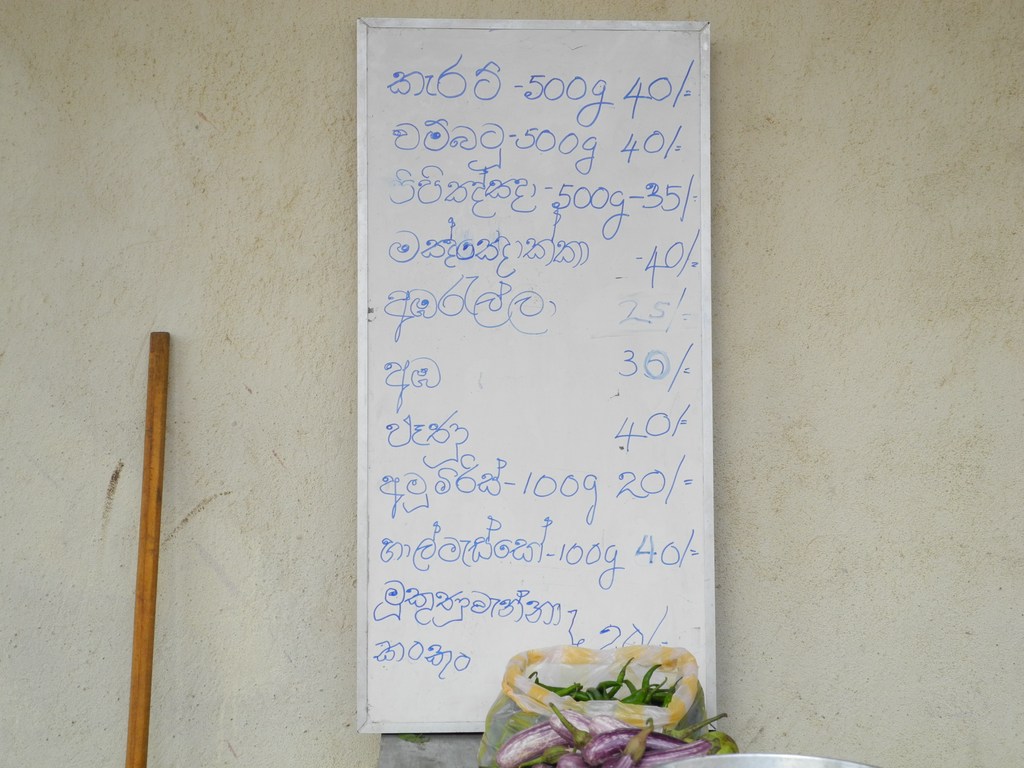 කැරට් -500g 40/=
වම්බටු-500g 40/=
පිපිඤ්ඤා-500g-35/-
මඤ්ඤොක්කා -40/=
අඹරැල්ලා 25/-
අඹ 30/=
වෑණ්ඩු 40/=
අමු මිරිස්-100g 20/=
හාල්මැස්සෝ-100g 40/=
මුකුණුවැන්නා
කංකුං 20/-